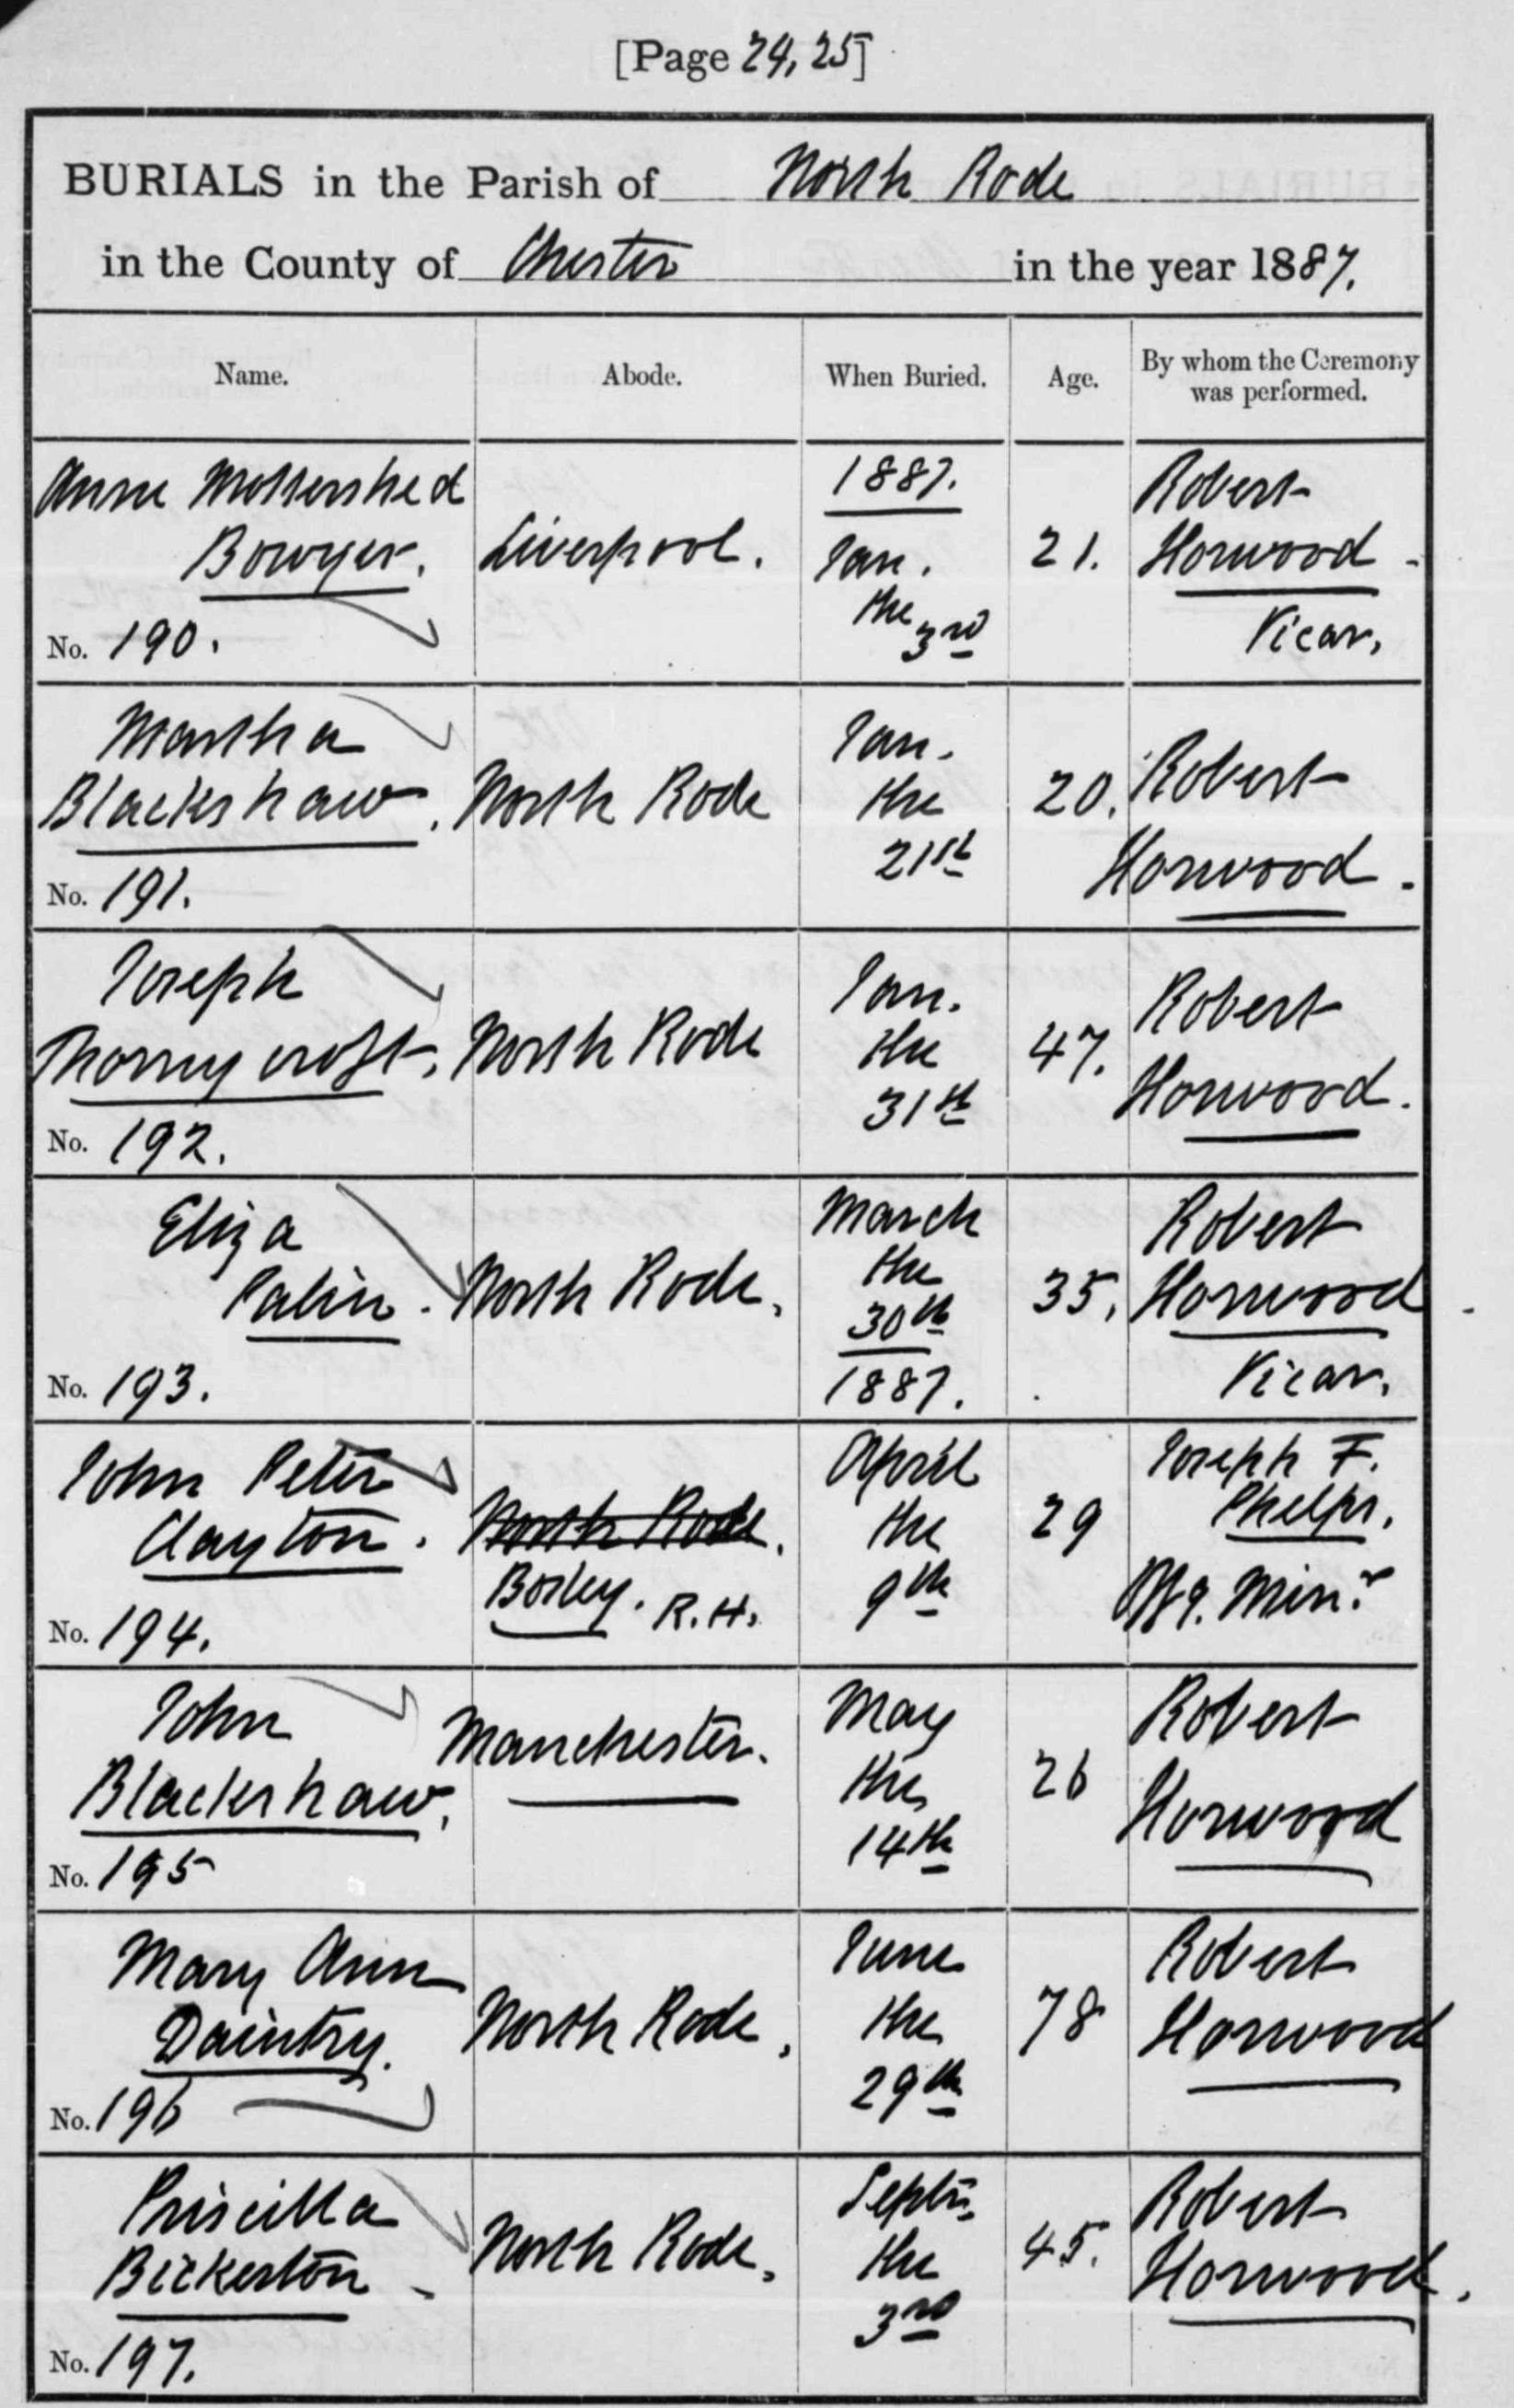 [Page 24, 25]
BURIALS in the Parish of North Rode
in the County of Chester in the year 1887.
Name. Abode. When Buried. Age. By whom the Ceremony was performed.
Anne Mottershed Bowyer. Liverpool. 1887. Jan. the 3rd 21. Robert Horwood - Vicar.
No. 190.
Martha Blackshaw. North Rode Jan. the 21st 20. Robert Horwood.
No. 191.
Joseph Thornycroft. North Rode Jan. the 31th 47. Robert Horwood.
No. 192.
Eliza Palin. North Rode. March the 30th 1887. 35. Robert Horwood Vicar.
No. 193.
John Peter Clayton. North Rode. Bosley. R.H. April the 9th 29 Joseph F. Phelps. Offg. Minr
No. 194.
John Blackshaw. Manchester. May the 14th 26 Robert Horwood
No. 195
Mary Ann Daintry. North Rode. June the 29th 78 Robert Horwood
No. 196
Priscilla Bickerton - North Rode. Septr. the 3rd 45. Robert Horwood.
No. 197.